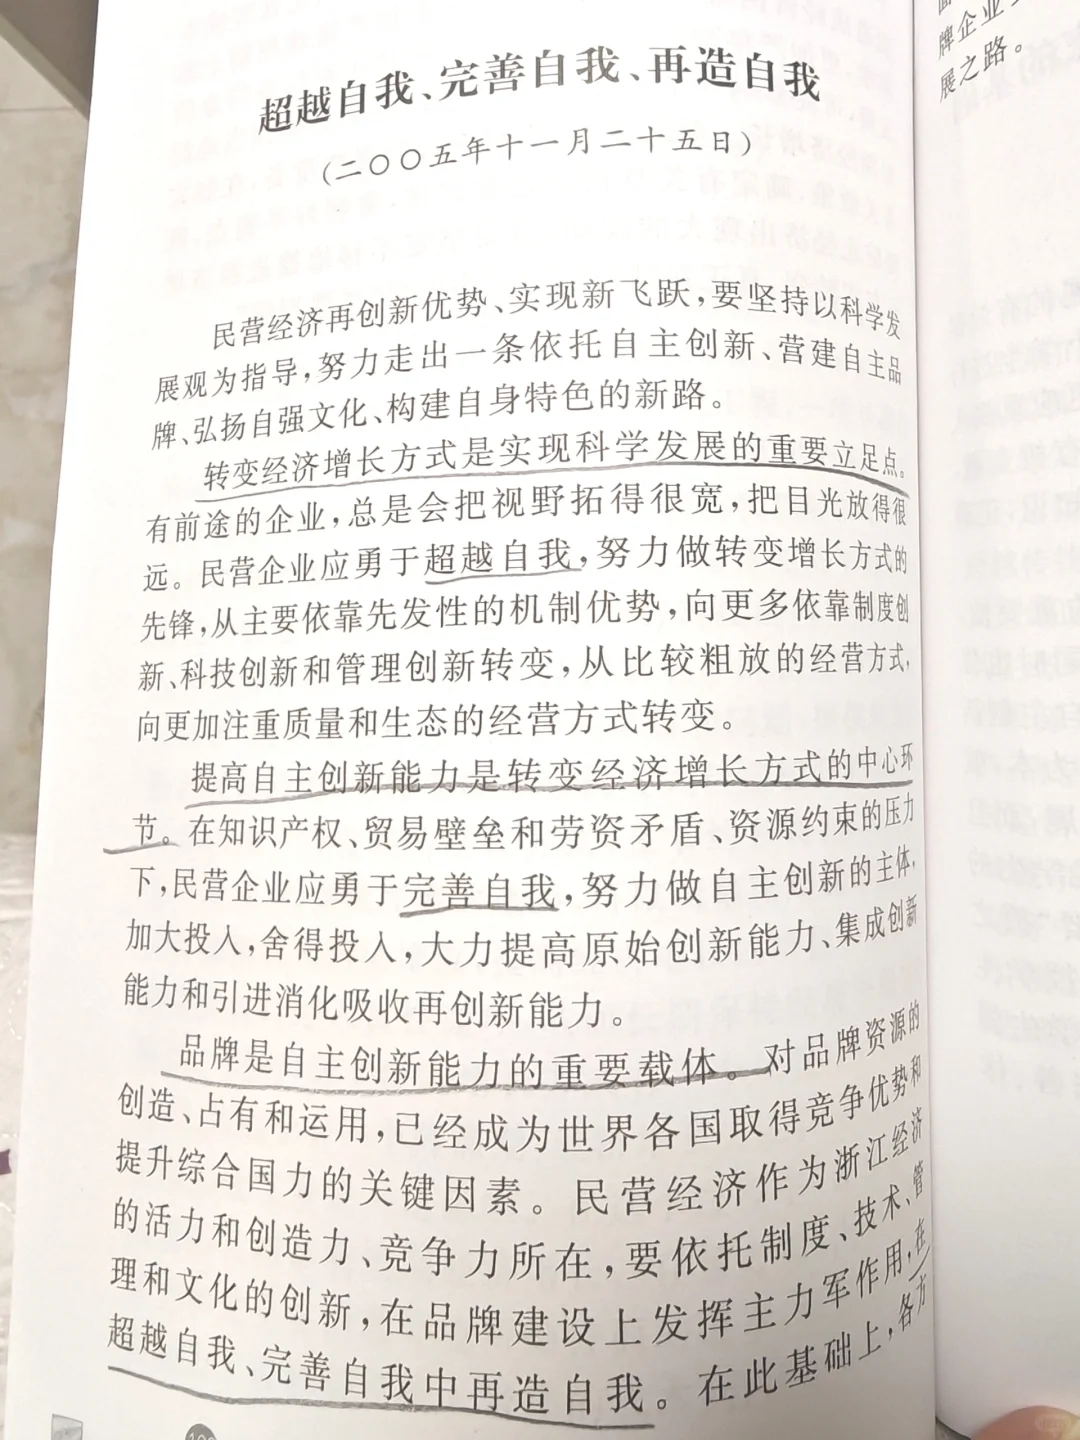 超越自我、完善自我、再造自我
(二〇〇五年十一月二十五日)
民营经济再创新优势、实现新飞跃，要坚持以科学发
展观为指导，努力走出一条依托自主创新、营建自主品
牌、弘扬自强文化、构建自身特色的新路。
转变经济增长方式是实现科学发展的重要立足点。
有前途的企业，总是会把视野拓得很宽，把目光放得很
远。民营企业应勇于超越自我，努力做转变增长方式的
先锋，从主要依靠先发性的机制优势，向更多依靠制度创
新、科技创新和管理创新转变，从比较粗放的经营方式，
向更加注重质量和生态的经营方式转变。
提高自主创新能力是转变经济增长方式的中心环
节。在知识产权、贸易壁垒和劳资矛盾、资源约束的压力
下，民营企业应勇于完善自我，努力做自主创新的主体，
加大投入，舍得投入，大力提高原始创新能力、集成创新
能力和引进消化吸收再创新能力。
品牌是自主创新能力的重要载体。对品牌资源的
创造、占有和运用，已经成为世界各国取得竞争优势和
提升综合国力的关键因素。民营经济作为浙江经济
的活力和创造力、竞争力所在，要依托制度、技术、管
理和文化的创新，在品牌建设上发挥主力军作用，在
超越自我、完善自我中再造自我。在此基础上，各方
牌企业
展之路。